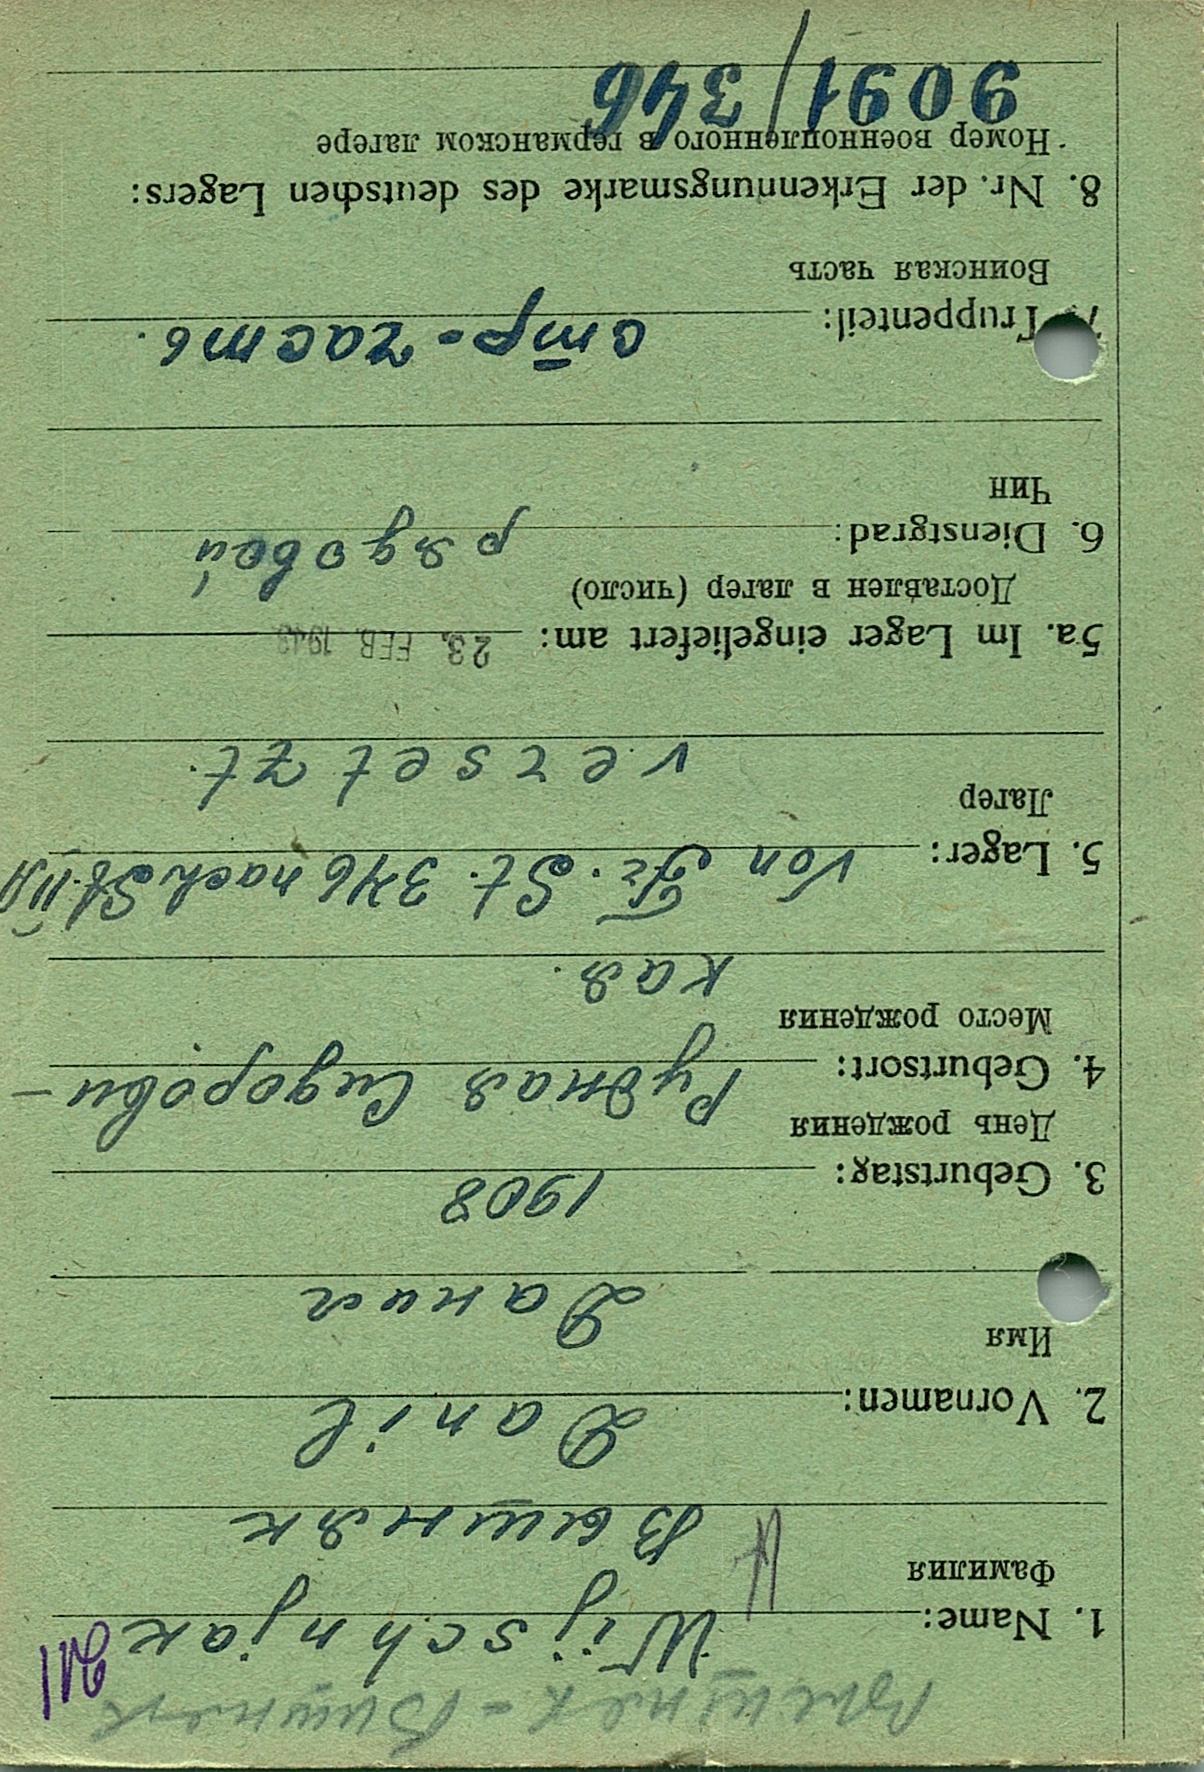 Вышняк - Вишняк
211
1. Name: Wijschnjak
Фамилия Вышняк
2. Vornamen: Danil
Имя Данил
3. Geburtstag: 1908
День рождения
4. Geburtsort: Рудная Сидорови-
Место рождения кая.
5. Lager: Von Fr. St. 346 nach St. II A
Лагер versetzt.
5a. Im Lager eingeliefert am: 23. FEB. 1943
Доставлен в лагер (число)
6. Dienstgrad: рядовой
Чин
7. Truppenteil: стр. часть.
Воинская часть
8. Nr. der Erkennungsmarke des deutschen Lagers:
Номер военнопленного в германском лагере
9091/346